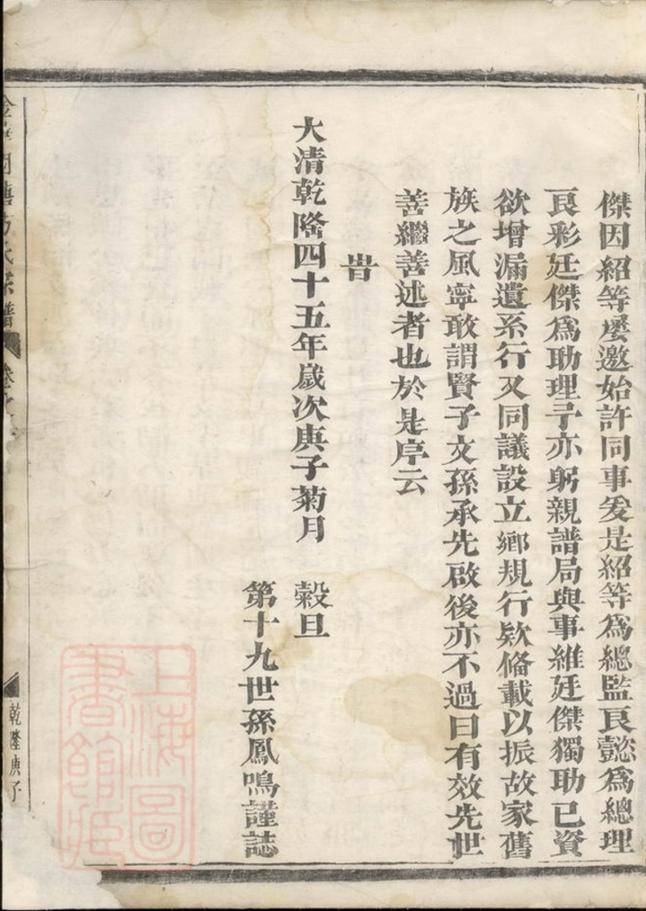 傑因紹等屡邀始許同事爰是紹等為總監良懿為總理
良彩廷傑為助理予亦躬親譜局與事維廷傑獨助己資
欲增漏遺系行又同議設立鄉規行欵俻載以振故家舊
族之風寧敢謂賢子文孫承先啟後亦不過曰有效先世
善繼善述者也於是序云
旹
大清乾隆四十五年歲次庚子菊月 榖旦
第十九世孫鳳鳴謹誌
氏宗譜
乾隆庚子
上海圖書館